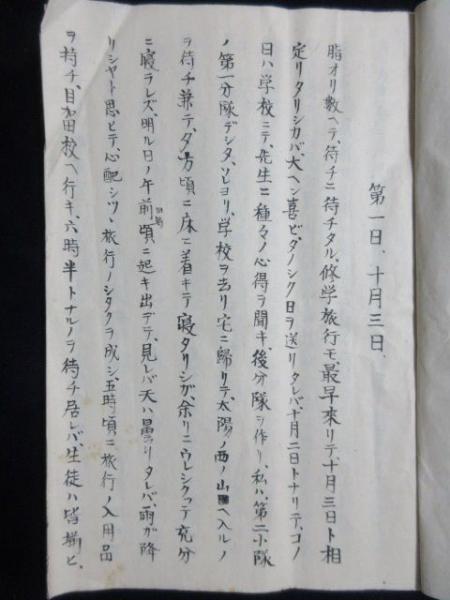 第一日、十月三日、
指オリ數ヘテ、待チニ待チタル、修学旅行モ、最早來リテ、十月三日ト相
定リタリシカバ、大ヘン喜ビ、タノシク日ヲ送リタレバ、十月二日トナリテ、コノ
日ハ学校ニテ、先生ニ種々ノ心得ヲ聞キ、後分隊ヲ作リ、私ハ、第二小隊
ノ第一分隊デシタ、ソレヨリ、学校ヲ去リ宅ニ歸リテ、太陽ノ西ノ山ヘ入ルノ
ヲ待チ兼テ、夕方頃ニ床ニ着キテ寝タリシガ、余リニウレシクッテ充分
ニ寝ラレズ、明ル日ノ午前頃ニ起キ出デテ、見レバ天ハ曇リタレバ、雨ガ降
リシヤト思ヒテ、心配シツヽ旅行ノシタクヲ成シ、五時頃ニ旅行ノ入用品
ヲ持チ、目加田校ヘ行キ、六時半トナルノヲ待チ居レバ、生徒ハ皆揃ヒ、